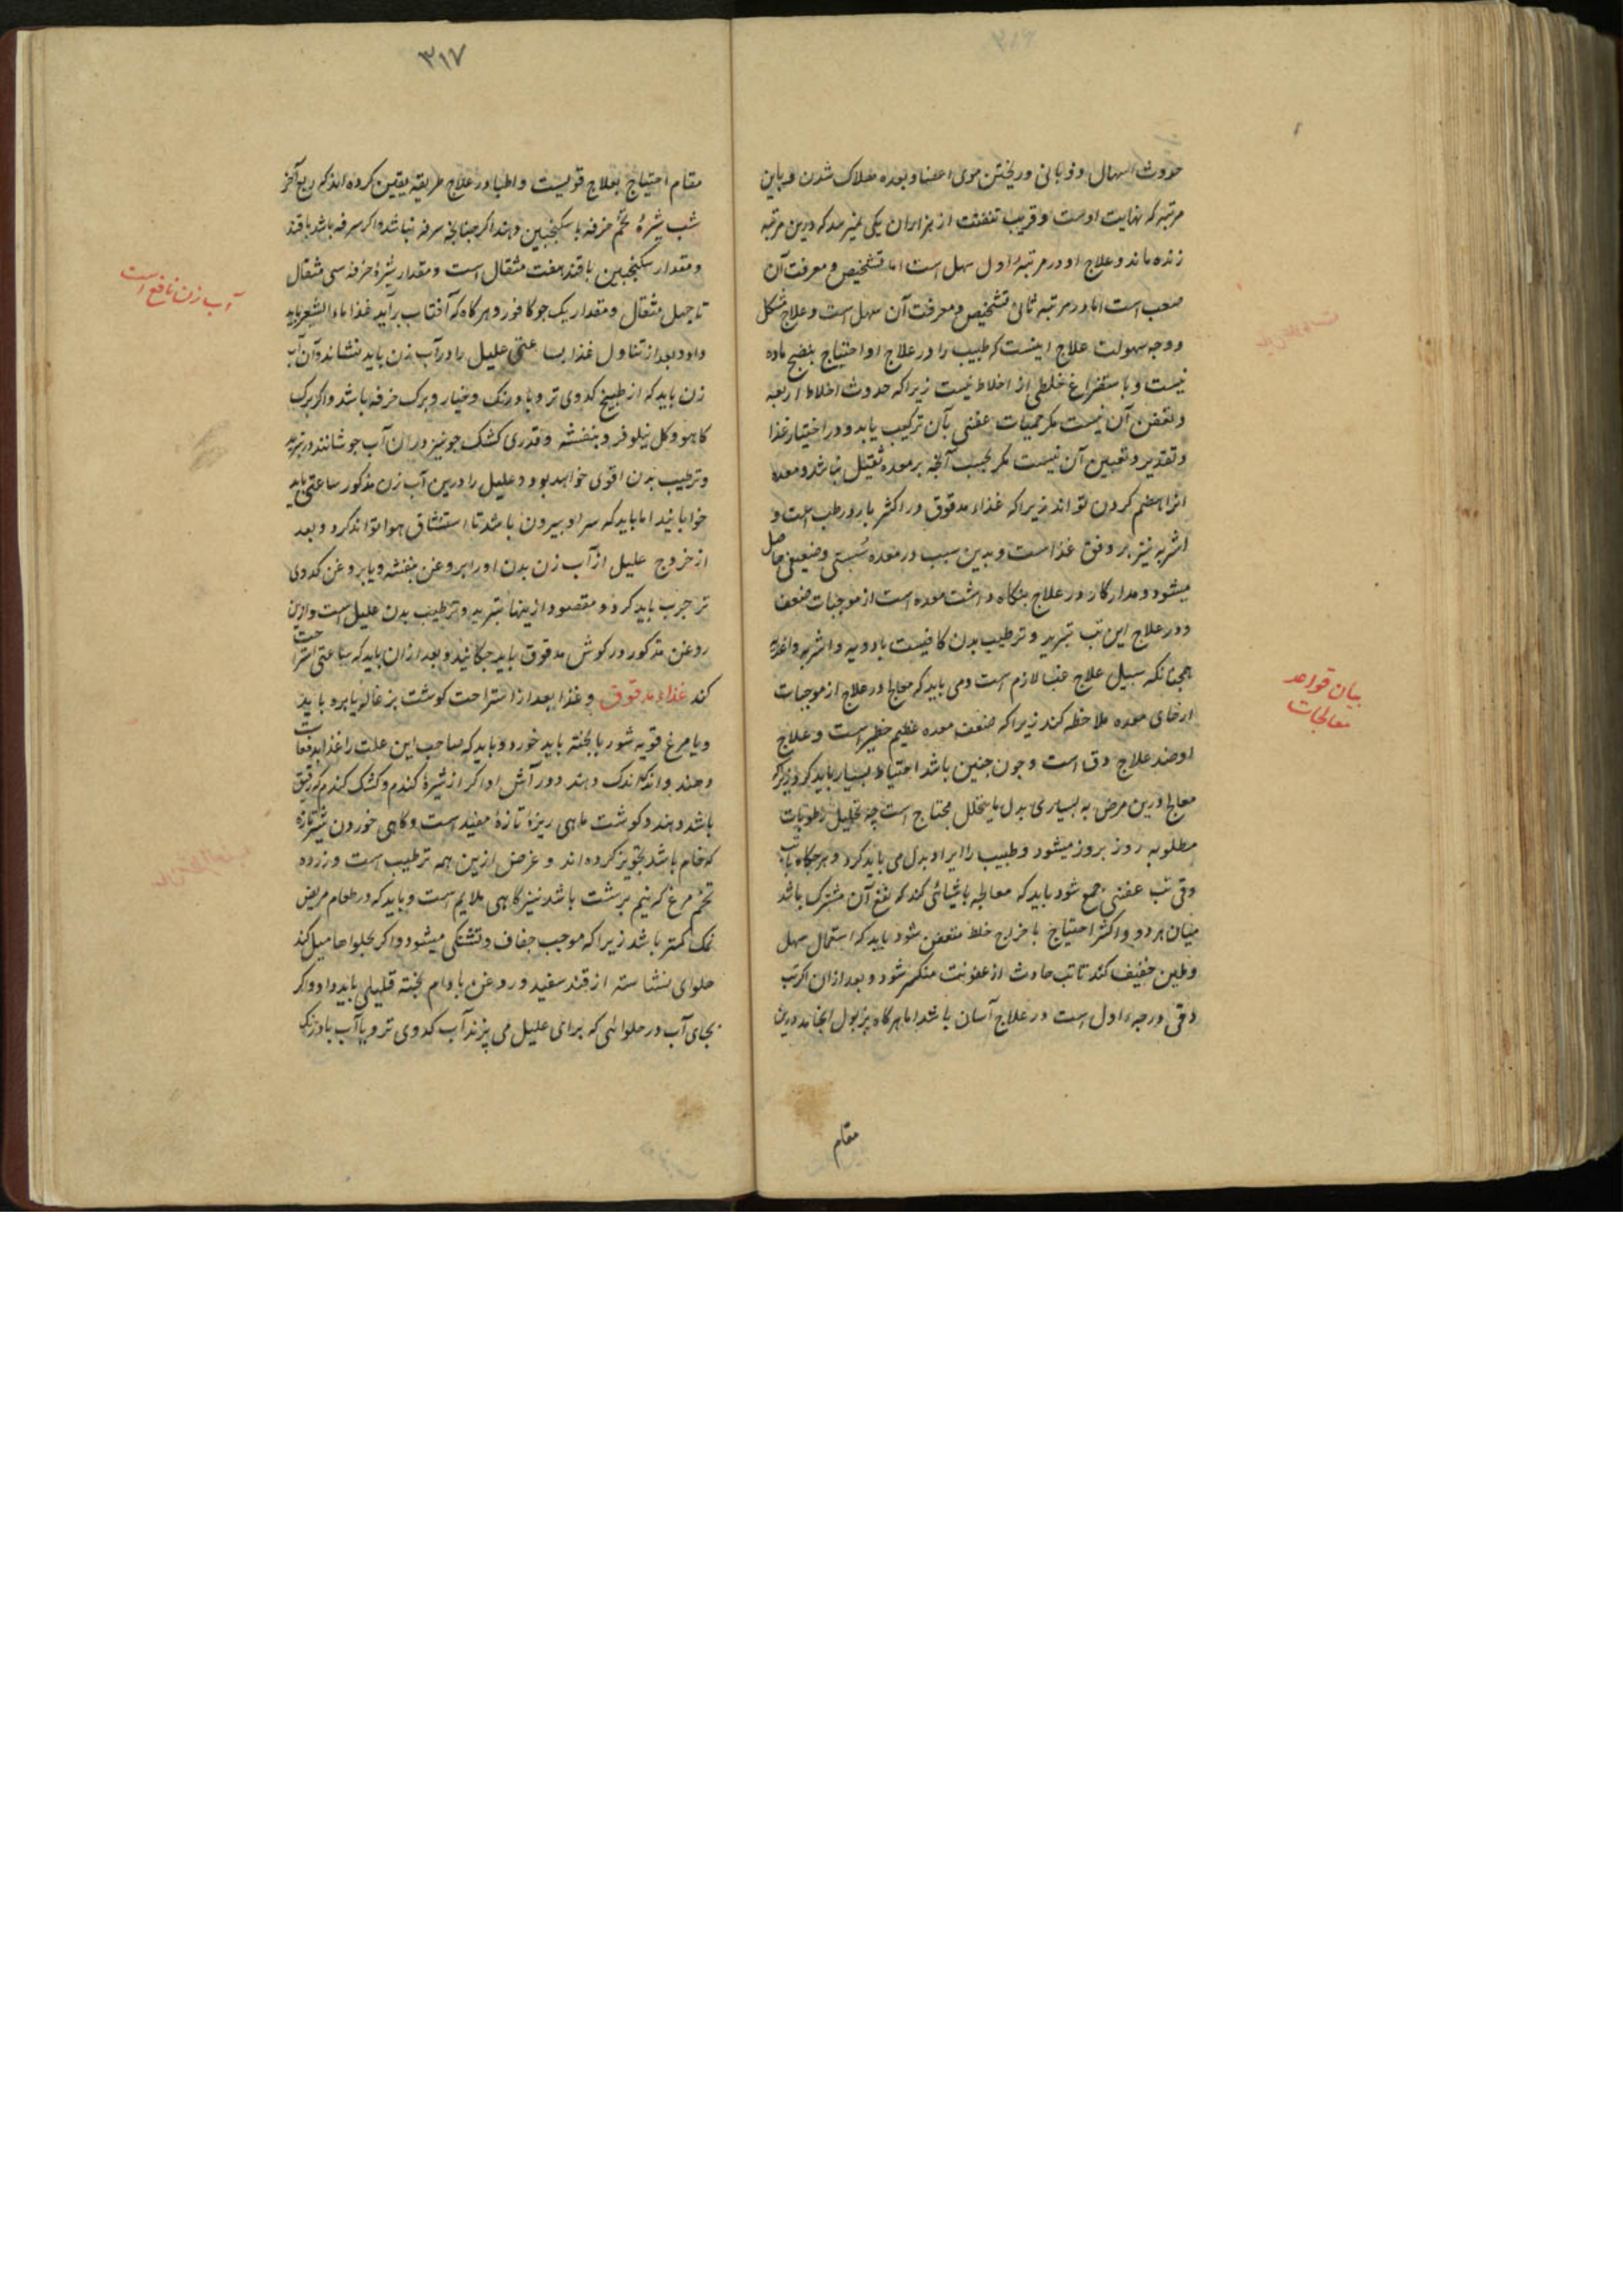 حدوث اسهال و ذوبانی و ریختن موی اعضا و بعده هلاک شدن و باین
مرتبه که نهایت اوست و قریب تفتت از هزاران یکی نمیرسد که درین مرتبه
زنده ماند و علاج او در مرتبهٔ اول سهل است اما تشخیص و معرفت آن
صعب است اما در مرتبه ثانی تشخیص و معرفت آن سهل است و علاج مشکل
و وجه سهولت علاج اینست که طبیب را در علاج او احتیاج بنضج ماده
نیست و باستفراغ خلطی از اخلاط نیست زیرا که حدوث اخلاط اربعه
و تعفن آن نیست مکر حمیات عفنی بآن ترکیب یابد و در اختیار غذا
و تقدیر و تعیین آن نیست مکر بحسب آنچه بر معده ثقیل نباشد و معده
انرا هضم کردن تواند زیرا که غذاء مدقوق در اکثر بارد و رطب است و
اشربه نیز بر وفق غذاست و بدین سبب در معده سستی و ضعیفی حاصل
میشود و مدار کار در علاج نکاه داشت معده است از موجبات ضعف
و در علاج این تب تبرید و ترطیب بدن کافیست بادویه و اشربه و اغذیه
همچنانکه سبیل علاج غب لازم است و می باید که معالج در علاج از موجبات
ارخای معده ملاحظه کند زیرا که ضعف معده عظیم خطیر است و علاج
او ضد علاج دق است و چون چنین باشد احتیاط بسیار باید کرد دیکر
معالج درین مرض به بسیاری بدل ما یتحلل محتاج است چه تحلیل رطوبات
مطلوبه روز بروز میشود و طبیب را ایراد بدل می باید کرد و هرجکاه با تب
دقی تب عفنی جمع شود باید که معالجه باشیائی کند که نفع آن مشترک باشد
میان هر دو و اکثر احتیاج باخراج خلط متعفن شود باید که استعمال سهل
و ملین خفیف کند تا تب حادث از عفونت منکسر شود و بعد ازان اکر تب
دقی درجهء اول است در علاج آسان باشد اما هرگاه بذبول انجامد درین
مقام
بیان قواعد
معالجات
۳۱۷
مقام احتیاج بعلاج قویست و اطبا در علاج طریقه یقین کرده اند که ربع آخر
شب شیرهٔ تخم خرفه با سکنجبین دهند اکر چنانچه سرفه نباشد و اکر سرفه باشد با قند
و مقدار سکنجبین با قند هفت مثقال است و مقدار شیرهٔ خرفه سی مثقال
تا چهل مثقال و مقدار یک جو کافور و هرگاه که آفتاب برآید غذا ماء الشعیر باید
داد و بعد از تناول غذا بساعتی علیل را در آب زن باید نشاند و آن آب
زن باید که از طبیخ کدوی تر و بادرنک و خیار و برک خرفه باشد و اکر برک
کاهو و کل نیلوفر و بنفشه و قدری کشک جو نیز دران آب جوشانند در تبرید
و ترطیب بدن اقوی خواهد بود و علیل را درین آب زن مذکور ساعتی باید
خوابانید اما باید که سر او بیرون باشد تا استنشاق هوا تواند کرد و بعد
از خروج علیل از آب زن بدن او را بروغن بنفشه و یا بروغن کدوی
تر چرب باید کرد و مقصود ازینها تبرید و ترطیب بدن علیل است و ازین
روغن مذکور در کوش مدقوق باید چکانید و بعد ازان باید که ساعتی استراحت
کند غذاء مدقوق و غذا بعد از استراحت کوشت بزغاله یا بره باید
و یا مرغ قویه شوربا پخته باید خورد و باید که صاحب این علت را غذا بدفعات
دهند و اندک اندک دهند و در آش او اکر از شیرهٔ کندم و کشک کندم که رقیق
باشد دهند و کوشت ماهی ریزهٔ تازهٔ مفید است و کاهی خوردن شیر تازه
که خام باشد تجویز کرده اند و غرض ازین همه ترطیب است و زرده
تخم مرغ که نیم برشت باشد نیز کاهی ملایم است و باید که در طعام مریض
نمک کمتر باشد زیرا که موجب جفاف و تشنکی میشود و اکر بحلواها میل کند
حلوای نشاسته از قند سفید و روغن بادام پخته قلیلی باید داد و اکر
بجای آب در حلوائی که برای علیل می پزند آب کدوی تر و یا آب بادرنک
آب زن نافع است